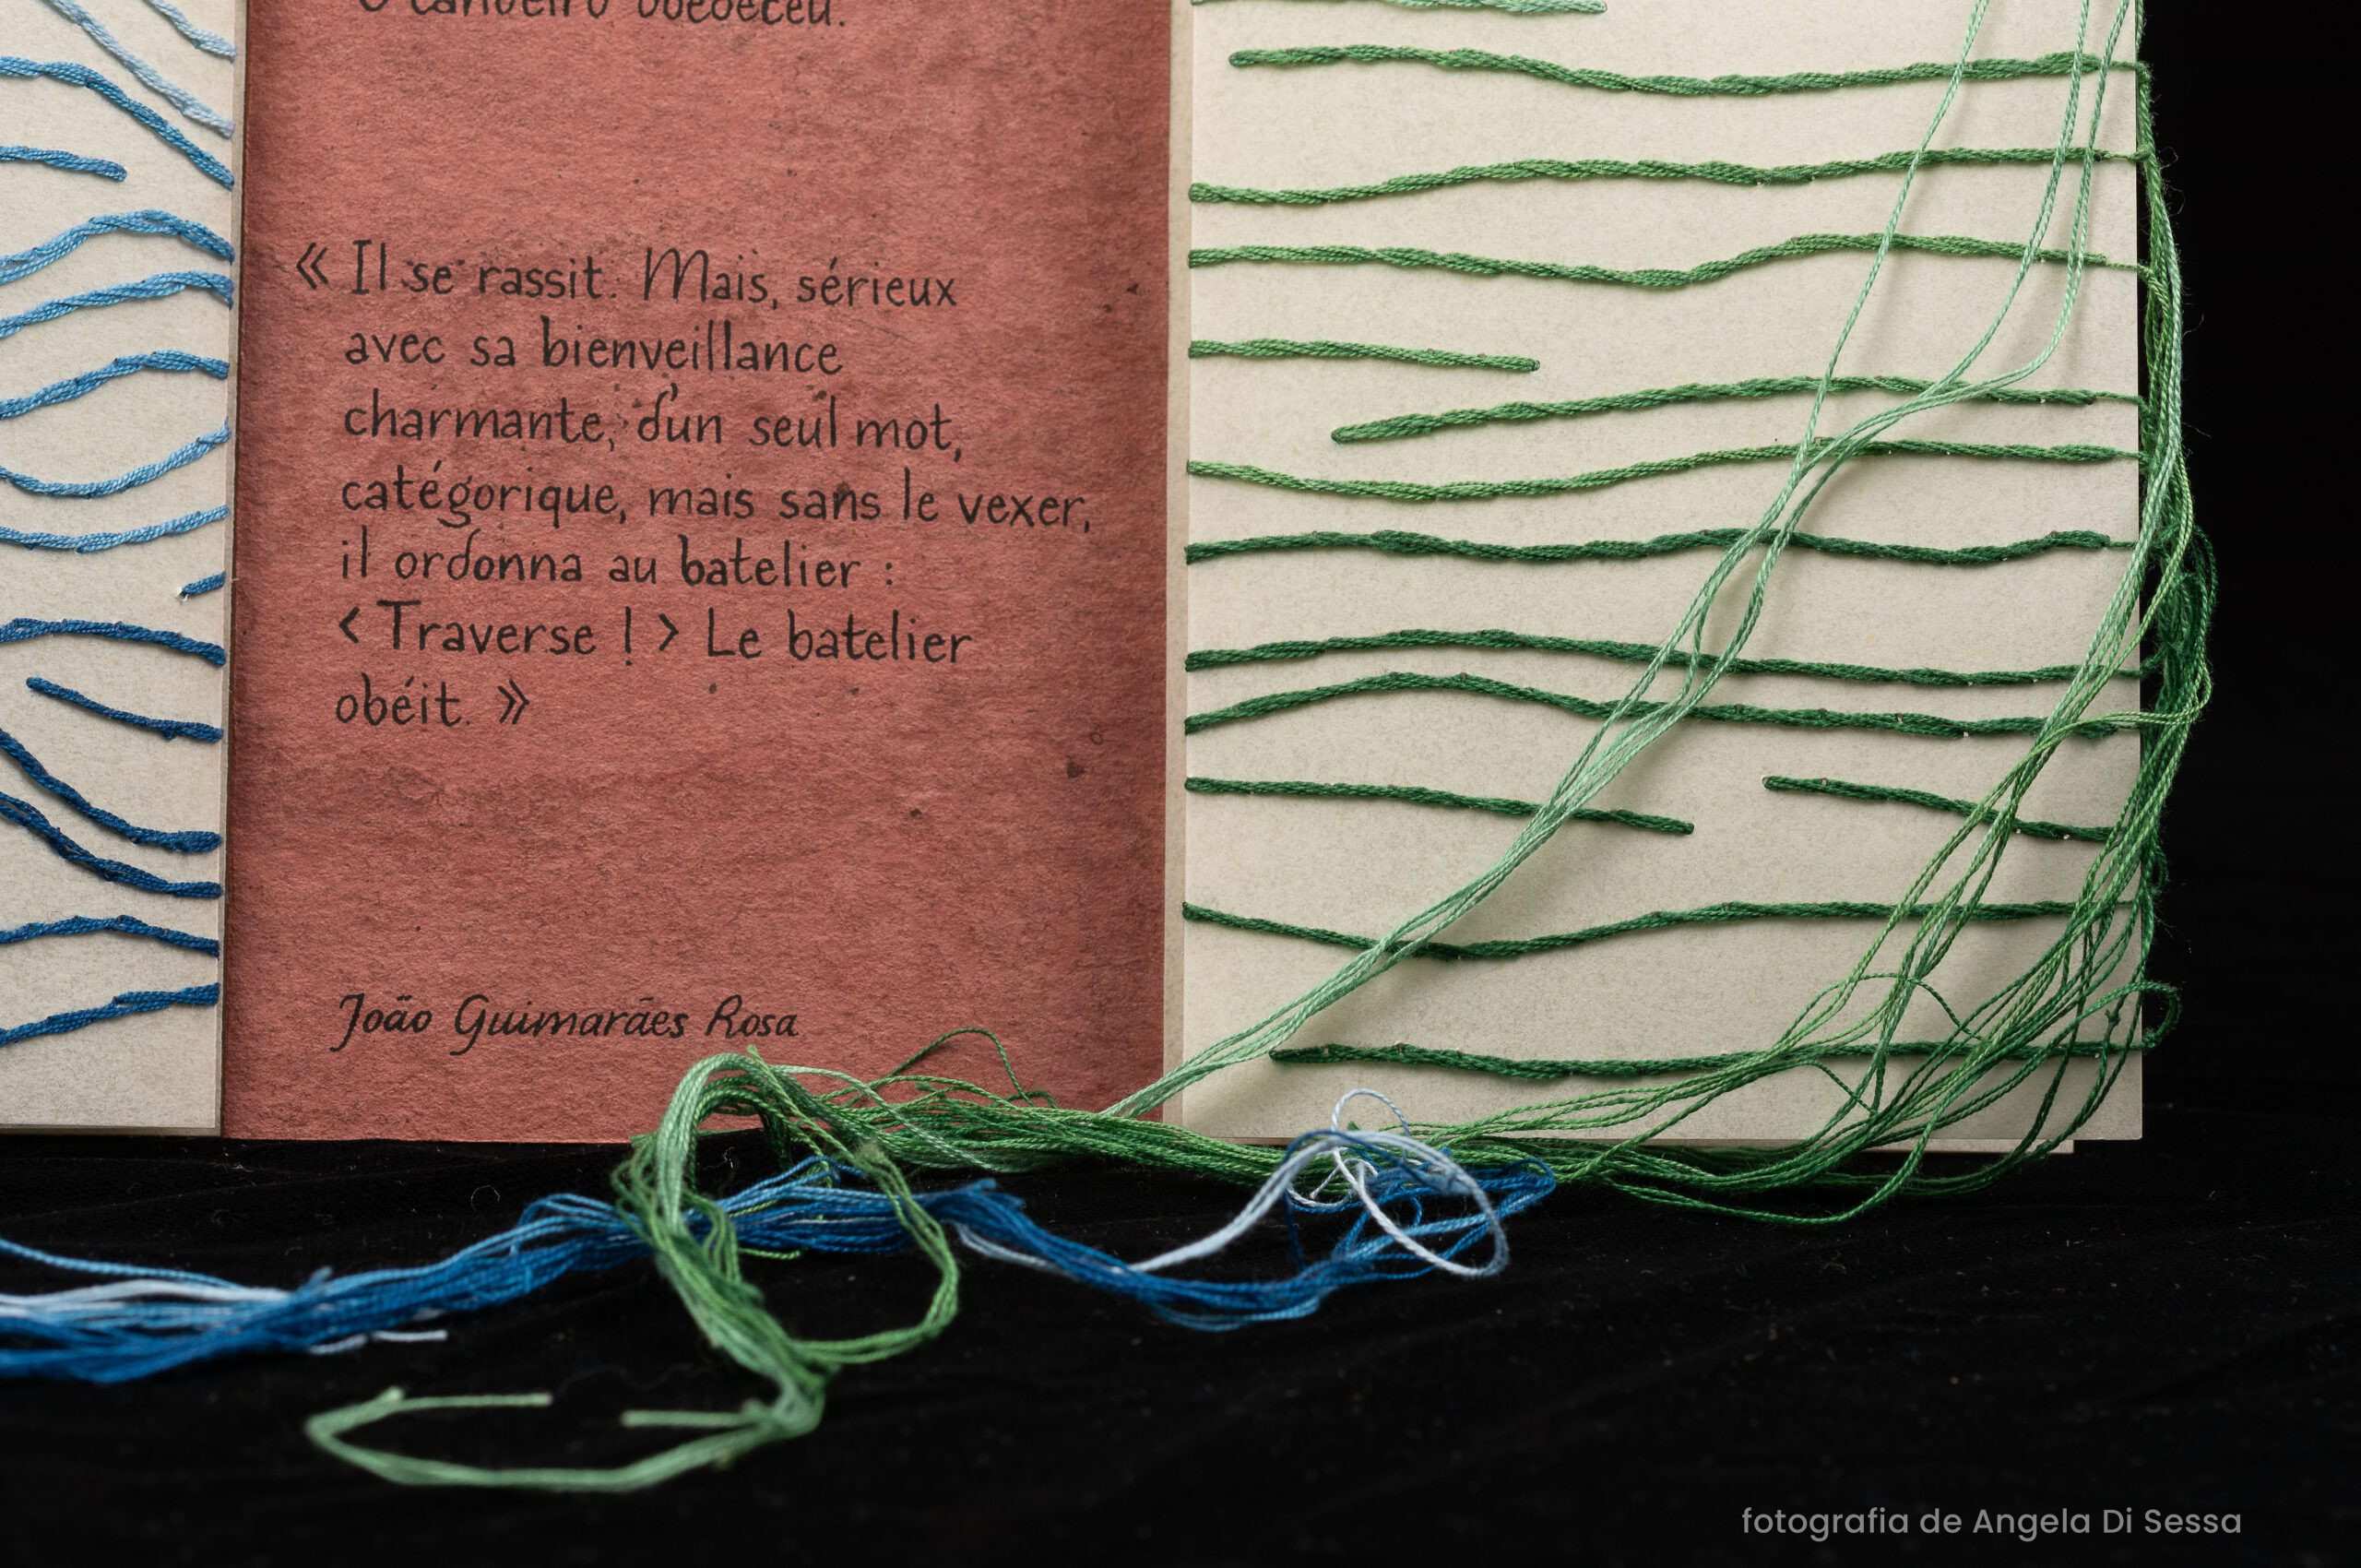 O canoeiro obedeceu.
« Il se rassit. Mais, sérieux
avec sa bienveillance
charmante, d'un seul mot,
catégorique, mais sans le vexer,
il ordonna au batelier :
‹ Traverse ! › Le batelier
obéit. »
João Guimarães Rosa
fotografia de Angela Di Sessa